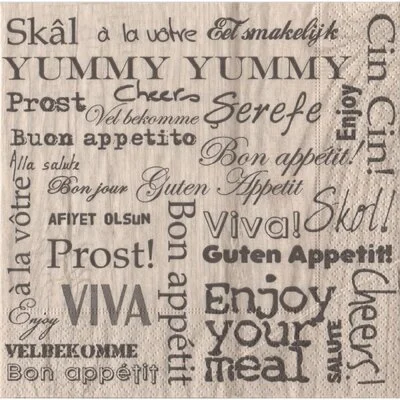 Skâl
à la vôtre
Eet smakelijk
YUMMY YUMMY
Prost
Cheers
Vel bekomme
Şerefe
Enjoy
Cin Cin!
Buon appetito
Bon appétit!
Alla salute
Bon jour
Guten Appetit
à la vôtre
AFIYET OLSUN
Bon appétit
Viva!
Skol!
Prost!
Guten Appetit!
Enjoy
VIVA
Enjoy
your
meal
SALUTE
Cheers!
VELBEKOMME
Bon appétit